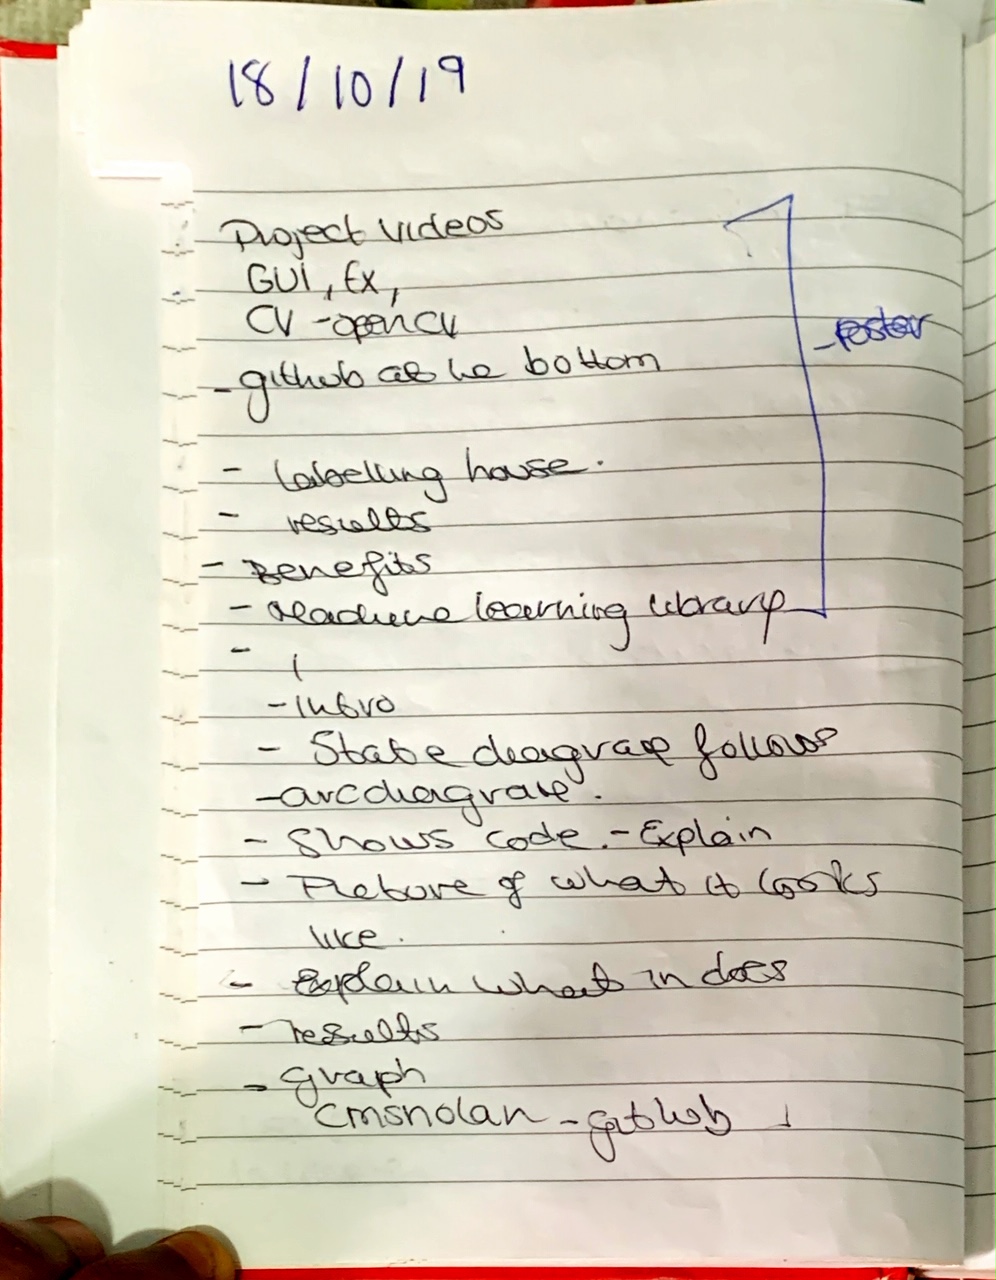 18/10/19
Project Videos
GUI, Ex,
CV - opencv
- github at the bottom
- poster
- labelling house.
- results
- Benefits
- Machine learning library
-
- Intro
- State diagram follows
- arcdiagram.
- Shows code. - Explain
- Picture of what it looks
like.
- Explain what in does
- results
- graph
cmsnolan - github